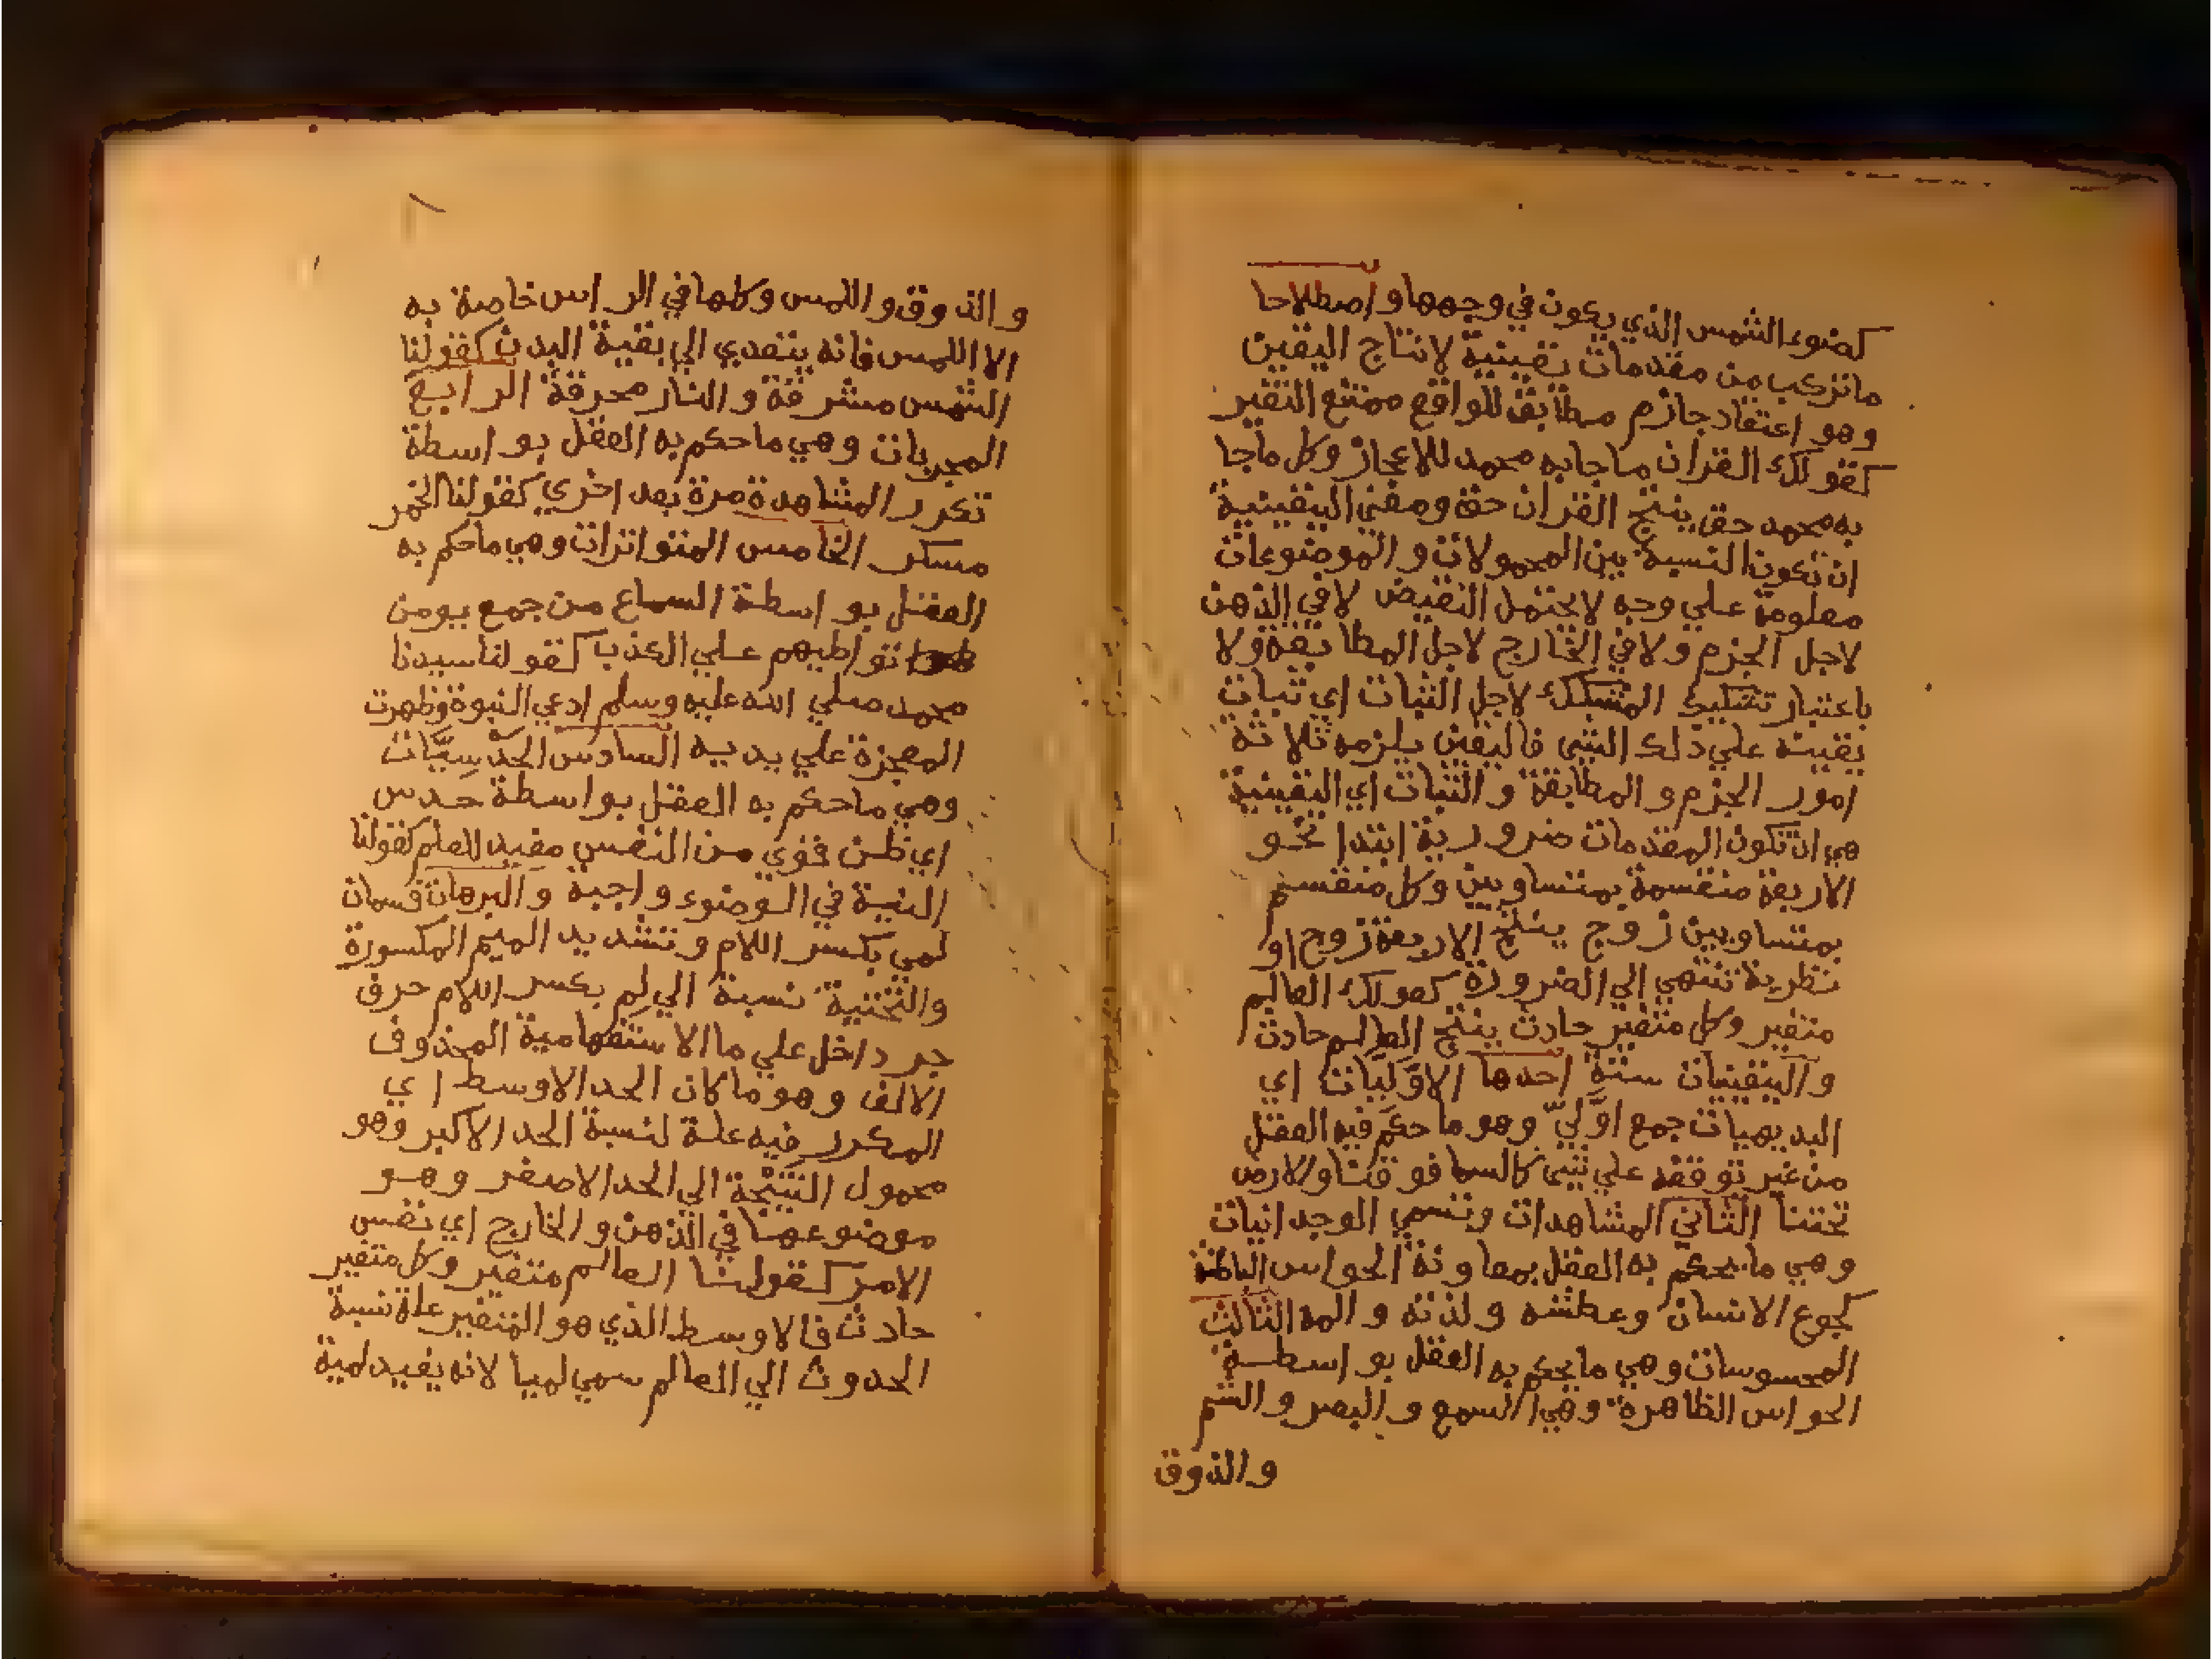 كضوء الشمس الذي يكون في وجهها واصطلاحا
ما تركب من مقدمات يقينية لانتاج اليقين
وهو اعتقاد جازم مطابق للواقع ممتنع التغير
كقولك القران ما جا به محمد للاعجاز وكل ما جا
به محمد حق ينتج القران حق ومعني اليقينية
ان تكون النسبة بين المحمولات و الموضوعات
معلومة علي وجه لا يحتمل النقيض لا في الذهن
لاجل الجزم ولا في الخارج لاجل المطابقة ولا
باعتبار تشكيك المشكك لاجل الثبات اي ثبات
يقينه علي ذلك الشي فاليقين يلزمه ثلاثة
امور الجزم و المطابقة و الثبات اي اليقينية
هي ان تكون المقدمات ضرورية ابتدا نحو
الاربعة منقسمة بمتساويين وكل منقسم
بمتساويين زوج ينتج الاربعة زوج او
نظرية تنتهي الي الضرورة كقولك العالم
متغير وكل متغير حادث ينتج العالم حادث
و اليقينيات ستة احدها الاوّليات اي
البديهيات جمع اوّليّ وهو ما حكم فيه العقل
من غير توقفه علي شي كالسما فوقنا والارض
تحتنا الثاني المشاهدات وتسمي الوجدانيات
وهي ما يحكم به العقل بمعاونة الحواس الباطنة
كجوع الانسان وعطشه ولذته و المه الثالث
المحسوسات وهي ما يحكم به العقل بواسطة
الحواس الظاهرة وهي السمع و البصر و الشم
والذوق
و الذوق و اللمس وكلها في الراس خاصة به
الا اللمس فانه يتعدي الي بقية البدن كقولنا
الشمس مشرقة و النار محرقة الرابع
المجربات وهي ما حكم به العقل بواسطة
تكرر المشاهدة مرة بعد اخري كقولنا الخمر
مسكر الخامس المتواترات وهي ما حكم به
العقل بواسطة السماع من جمع يومن
تواطيهم علي الكذب كقولنا سيدنا
محمد صلي الله عليه وسلم ادعي النبوة وظهرت
المعجزة علي يديه السادس الحدْسِيّات
وهي ما حكم به العقل بواسطة حدس
اي ظن قوي من النفس مفيد للعلم كقولنا
النية في الوضوء واجبة و البرهان قسمان
لمي بكسر اللام و تشديد الميم المكسورة
والتحتية نسبة الي لم بكسر اللام حرف
جر داخل علي ما الاستفهامية المحذوف
الالف وهو ما كان الحد الاوسط اي
المكرر فيه علة لنسبة الحد الاكبر وهو
محمول النتيجة الي الحد الاصغر وهو
موضوعها في الذهن و الخارج اي نفس
الامر كقولنا العالم متغير وكل متغير
حادث فالاوسط الذي هو المتغير علة نسبة
الحدوث الي العالم سمي لميا لانه يفيد لمية